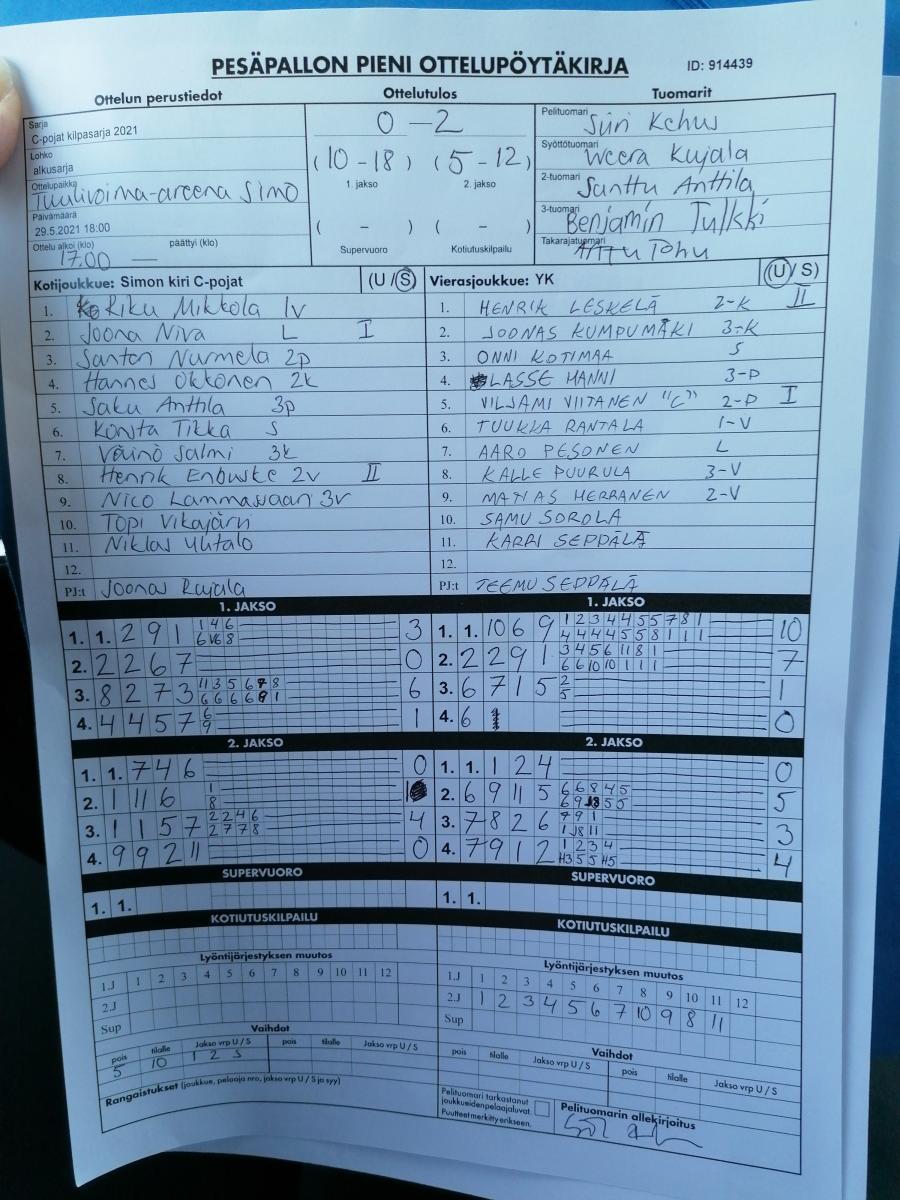 PESÄPALLON PIENI OTTELUPÖYTÄKIRJA ID: 914439
Ottelun perustiedot Ottelutulos Tuomarit
Sarja
C-pojat kilpasarja 2021
Lohko
alkusarja
Ottelupaikka
Tuulivoima-areena Simo
Päivämäärä
29.5.2021 18:00
Ottelu alkoi (klo) päättyi (klo)
17.00 —
0 – 2
(10 - 18) (5 - 12)
1. jakso 2. jakso
( - ) ( - )
Supervuoro Kotiutuskilpailu
Pelituomari
Siiri Kehus
Syöttötuomari
Weera Kujala
2-tuomari
Santtu Anttila
3-tuomari
Benjamin Tulkki
Takarajatuomari
Kotijoukkue: Simon kiri C-pojat (U / S) Vierasjoukkue: YK (U / S)
1. Riku Mikkola 1v 1. HENRIK LESKELÄ 2-K II
2. Joona Niva L I 2. JOONAS KUMPUMÄKI 3-K
3. Santon Nurmela 2p 3. ONNI KOTIMAA S
4. Hannes Okkonen 2k 4. LASSE HANNI 3-P
5. Saku Anttila 3p 5. VILJAMI VIITANEN "C" 2-P I
6. Konsta Tikka S 6. TUUKKA RANTALA 1-V
7. Väinö Salmi 3k 7. AARO PESONEN L
8. Henrik Enbuske 2v II 8. KALLE PUURULA 3-V
9. Nico Lammassaari 3v 9. MATIAS HERRANEN 2-V
10. Topi Vikajärvi 10. SAMU SOROLA
11. Niklas 11. KARRI SEPPÄLÄ
12. 12.
PJ:t Joonas Kujala PJ:t TEEMU SEPPÄLÄ
1. JAKSO 1. JAKSO
1. 1. 2 9 1 3 1. 1. 10 6 9 10
2. 2 2 6 7 0 2. 2 2 9 1 7
3. 8 2 7 3 6 3. 6 7 1 5 1
4. 4 4 5 7 1 4. 6 0
2. JAKSO 2. JAKSO
1. 1. 7 4 6 0 1. 1. 1 2 4 0
2. 1 11 6 1 2. 6 9 11 5 5
3. 1 1 5 7 4 3. 7 8 2 6 3
4. 9 9 2 11 0 4. 7 9 1 2 4
SUPERVUORO SUPERVUORO
1. 1. 1. 1.
KOTIUTUSKILPAILU KOTIUTUSKILPAILU
Lyöntijärjestyksen muutos Lyöntijärjestyksen muutos
1.J 1 2 3 4 5 6 7 8 9 10 11 12 1.J 1 2 3 4 5 6 7 8 9 10 11 12
2.J 2.J 1 2 3 4 5 6 7 10 9 8 11
Sup Sup
Vaihdot Vaihdot
pois tilalle Jakso vrp U / S pois tilalle Jakso vrp U / S pois tilalle Jakso vrp U / S pois tilalle Jakso vrp U / S
5 10 1 2 S
Rangaistukset (joukkue, pelaaja nro, jakso vrp U / S ja syy)
Pelituomari tarkastanut
joukkueidenpelaajaluvat.
Puutteet merkitty erikseen.
Pelituomarin allekirjoitus